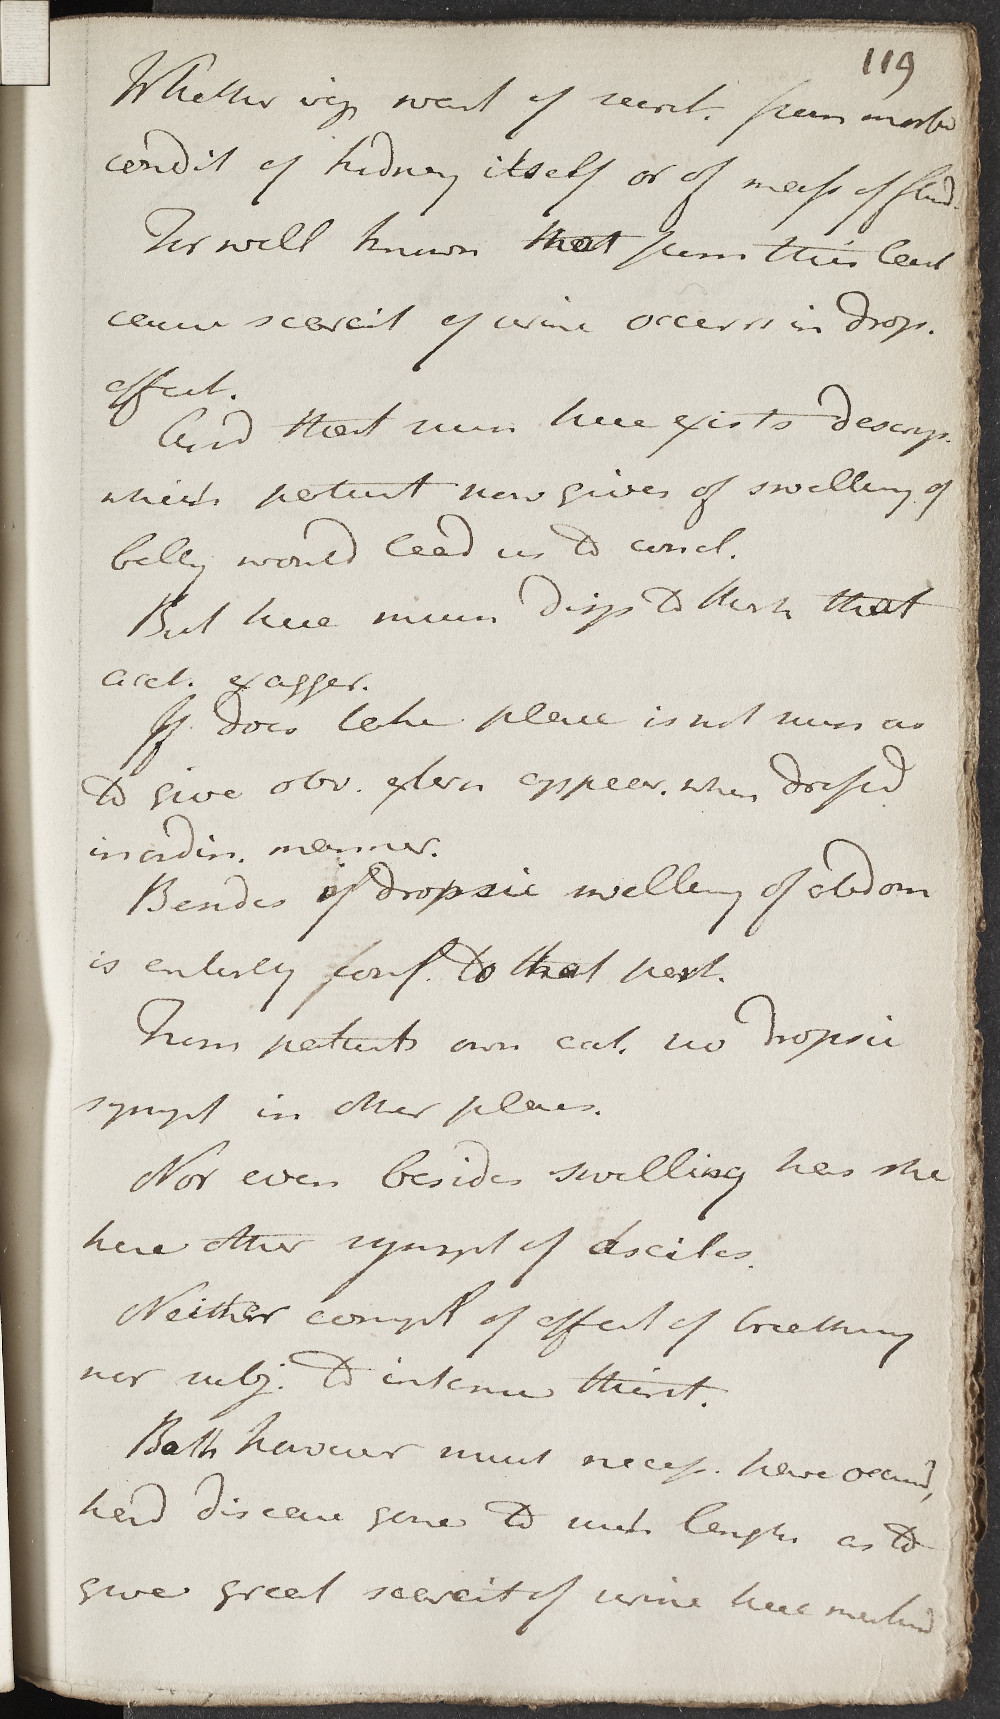 119
Whether viz want of secret. from morbid
condit of kidney itself or of mass of fluid.
Tis well known that from this last
cause scarcit of urine occurs in drop.
affect.
And that such here exists descrip.
which patient now gives of swelling of
belly would lead us to concl.
But here much disp to think that
acct. exagger.
If does take place is not such as
to give obv. extern appear. when dressed
in ordin. manner.
Besides if dropsic swelling of abdom
is entirely conf. to that part.
From patients own acct. no dropsic
sympt in other places.
Nor even besides swelling has she
here other sympt of ascites.
Neither compl of affect of breathing
nor subj. to intense thirst.
Both however must necess. have occurred,
had disease gone to such length as to
give great scarcit of urine here